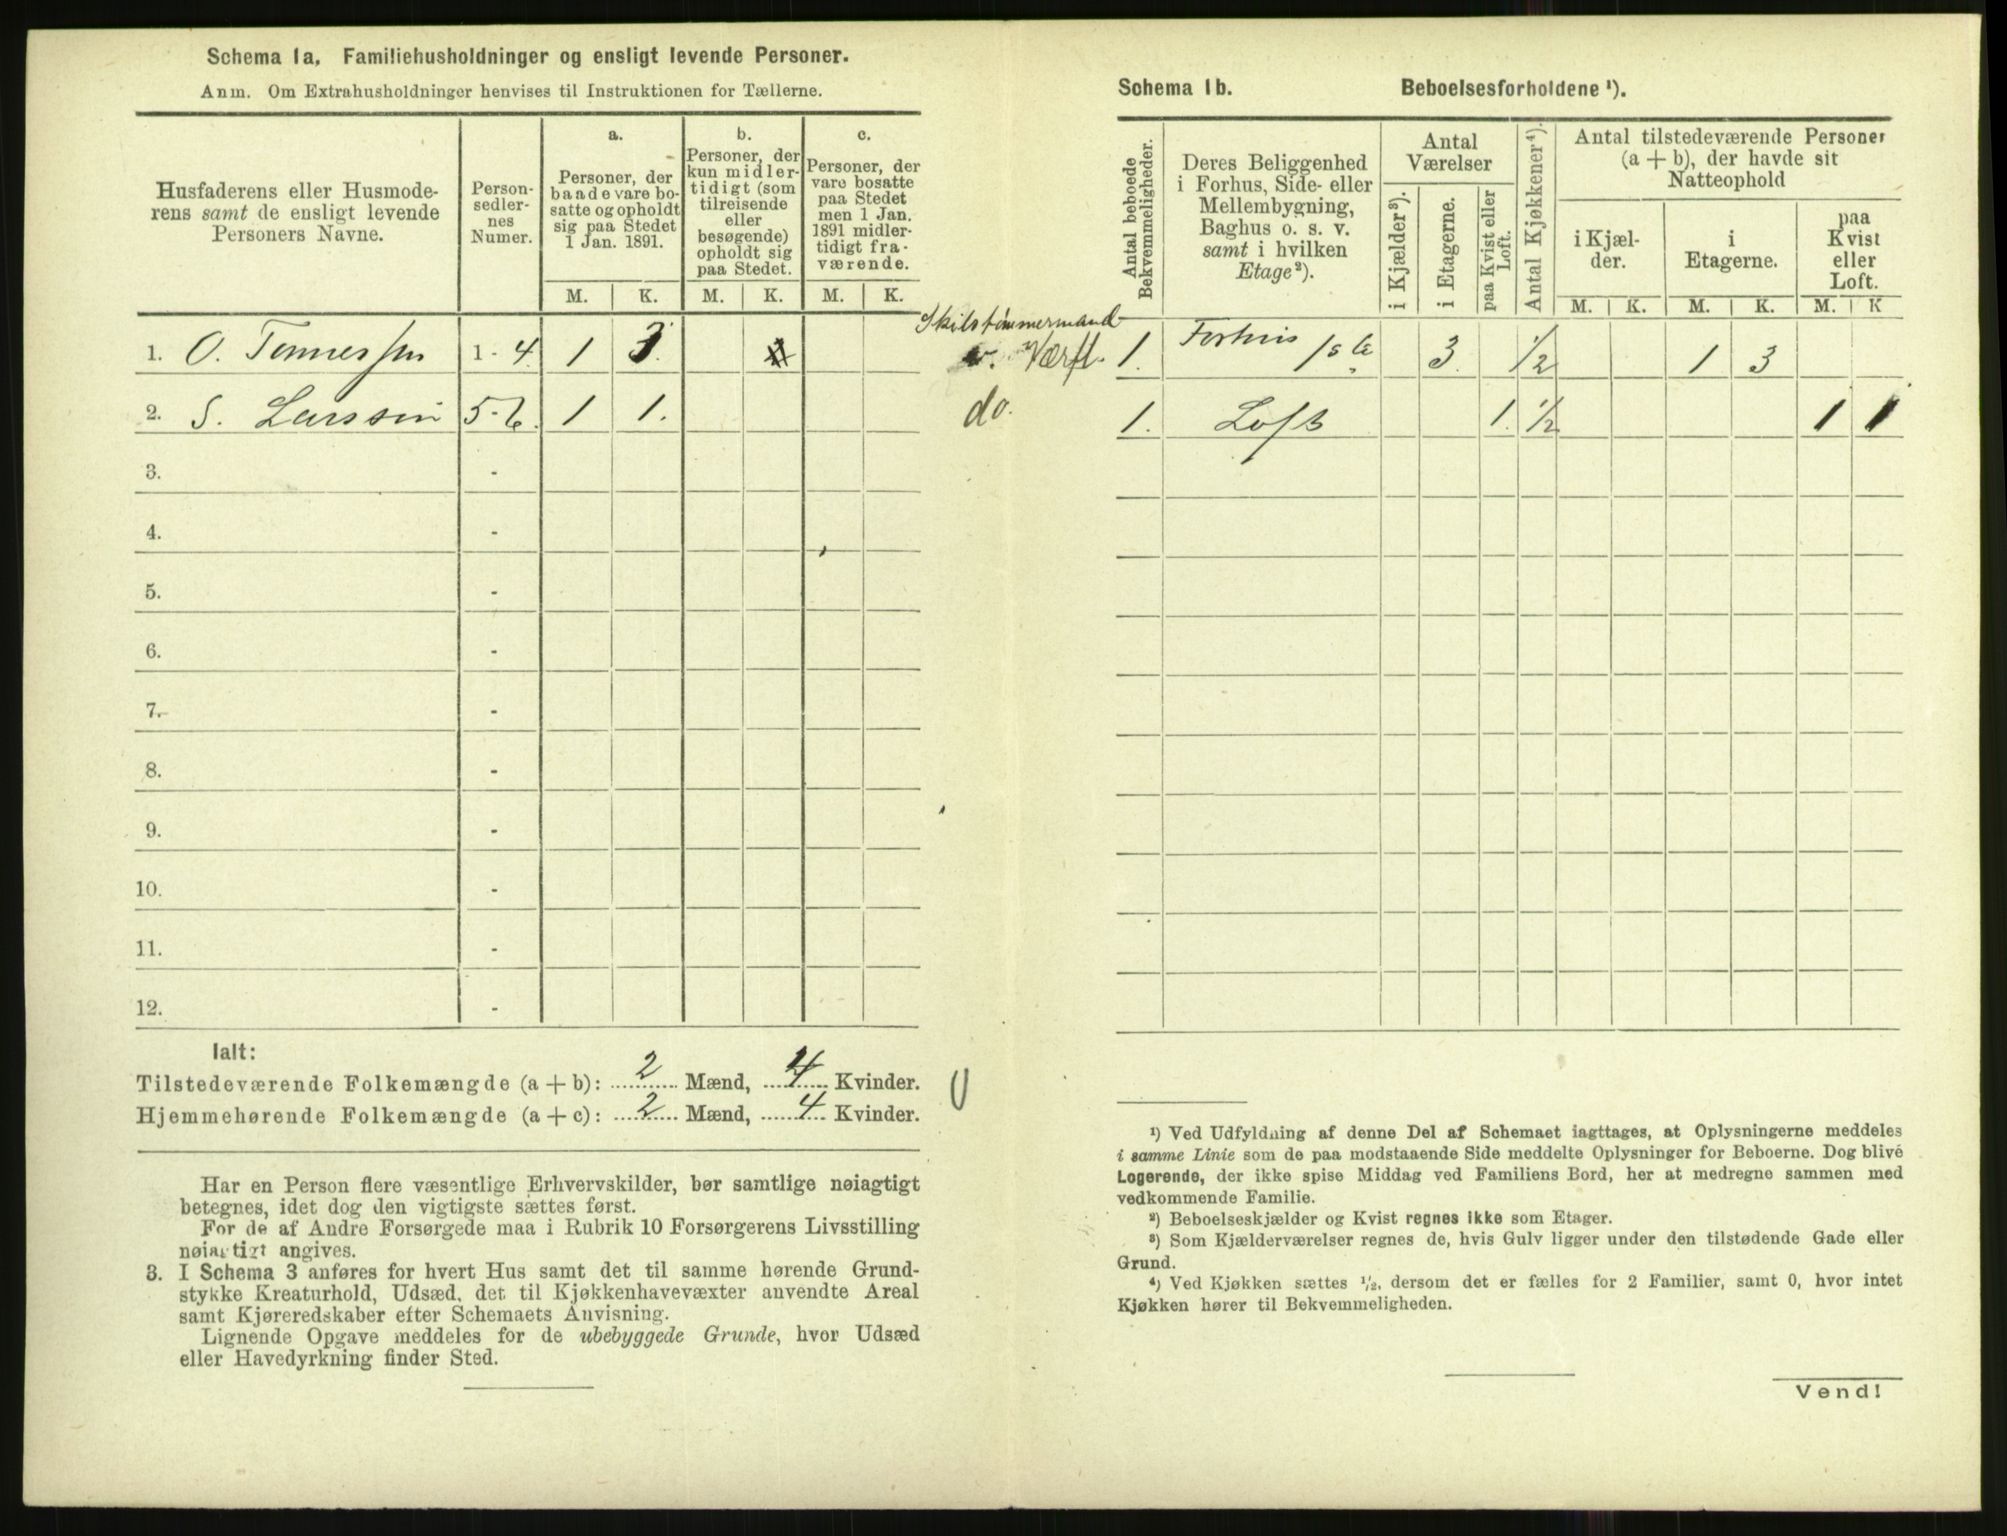 Schema 1a. Familiehusholdninger og ensligt levende Personer.
Anm. Om Extrahusholdninger henvises til Instruktionen for Tællerne.
Husfaderens eller Husmode-
rens samt de ensligt levende
Personers Navne.
Person-
sedler-
nes
Numer.
a.
Personer, der
baade vare bo-
satte og opholdt
sig paa Stedet
1 Jan. 1891.
b.
Personer, der
kun midler-
tidigt (som
tilreisende
eller
besøgende)
opholdt sig
paa Stedet.
c.
Personer, der
vare bosatte
paa Stedet
men 1 Jan.
1891 midler-
tidigt fra-
værende.
M. K. M. K. M. K.
1. O. Tønnessen 1 - 4. 1 3.
2. S. Larssen 5 - 6. 1 1.
3. -
4. -
5. -
6. -
7. -
8. -
9. -
10. -
11. -
12. -
Skibstømmermand
v. Værft.
do.
Ialt:
Tilstedeværende Folkemængde (a + b): 2 Mænd, 4 Kvinder.
Hjemmehørende Folkemængde (a + c): 2 Mænd, 4 Kvinder.
Har en Person flere væsentlige Erhvervskilder, bør samtlige nøiagtigt
betegnes, idet dog den vigtigste sættes først.
For de af Andre Forsørgede maa i Rubrik 10 Forsørgerens Livsstilling
nøiagtigt angives.
3. I Schema 3 anføres for hvert Hus samt det til samme hørende Grund-
stykke Kreaturhold, Udsæd, det til Kjøkkenhavevæxter anvendte Areal
samt Kjøreredskaber efter Schemaets Anvisning.
Lignende Opgave meddeles for de ubebyggede Grunde, hvor Udsæd
eller Havedyrkning finder Sted.
Schema 1b. Beboelsesforholdene ¹).
Antal beboede
Bekvemmeligheder.
Deres Beliggenhed
i Forhus, Side- eller
Mellembygning,
Baghus o. s. v.
samt i hvilken
Etage ²).
Antal
Værelser
i Kjælder ³).
i Etagerne.
paa Kvist eller
Loft.
Antal Kjøkkener ⁴).
Antal tilstedeværende Personer
(a + b), der havde sit
Natteophold
i Kjæl-
der.
i
Etagerne.
paa
Kvist
eller
Loft.
M. K. M. K. M. K
1. Forhus 1ste 3. 1/2 1 3
1. Loft 1. 1/2 1 1
¹) Ved Udfyldning af denne Del af Schemaet iagttages, at Oplysningerne meddeles
i samme Linie som de paa modstaaende Side meddelte Oplysninger for Beboerne. Dog blive
Logerende, der ikke spise Middag ved Familiens Bord, her at medregne sammen med
vedkommende Familie.
²) Beboelseskjælder og Kvist regnes ikke som Etager.
³) Som Kjælderværelser regnes de, hvis Gulv ligger under den tilstødende Gade eller
Grund.
⁴) Ved Kjøkken sættes 1/2, dersom det er fælles for 2 Familier, samt 0, hvor intet
Kjøkken hører til Bekvemmeligheden.
Vend!